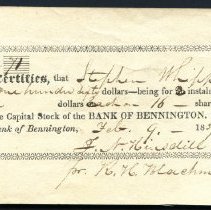 certifies, that Stephen Whipp
one hundred sixty dollars—being for 2 instal
dollars each on 16 — shar
e Capital Stock of the BANK OF BENNINGTON.
ank of Bennington, Feb. 9 — 183